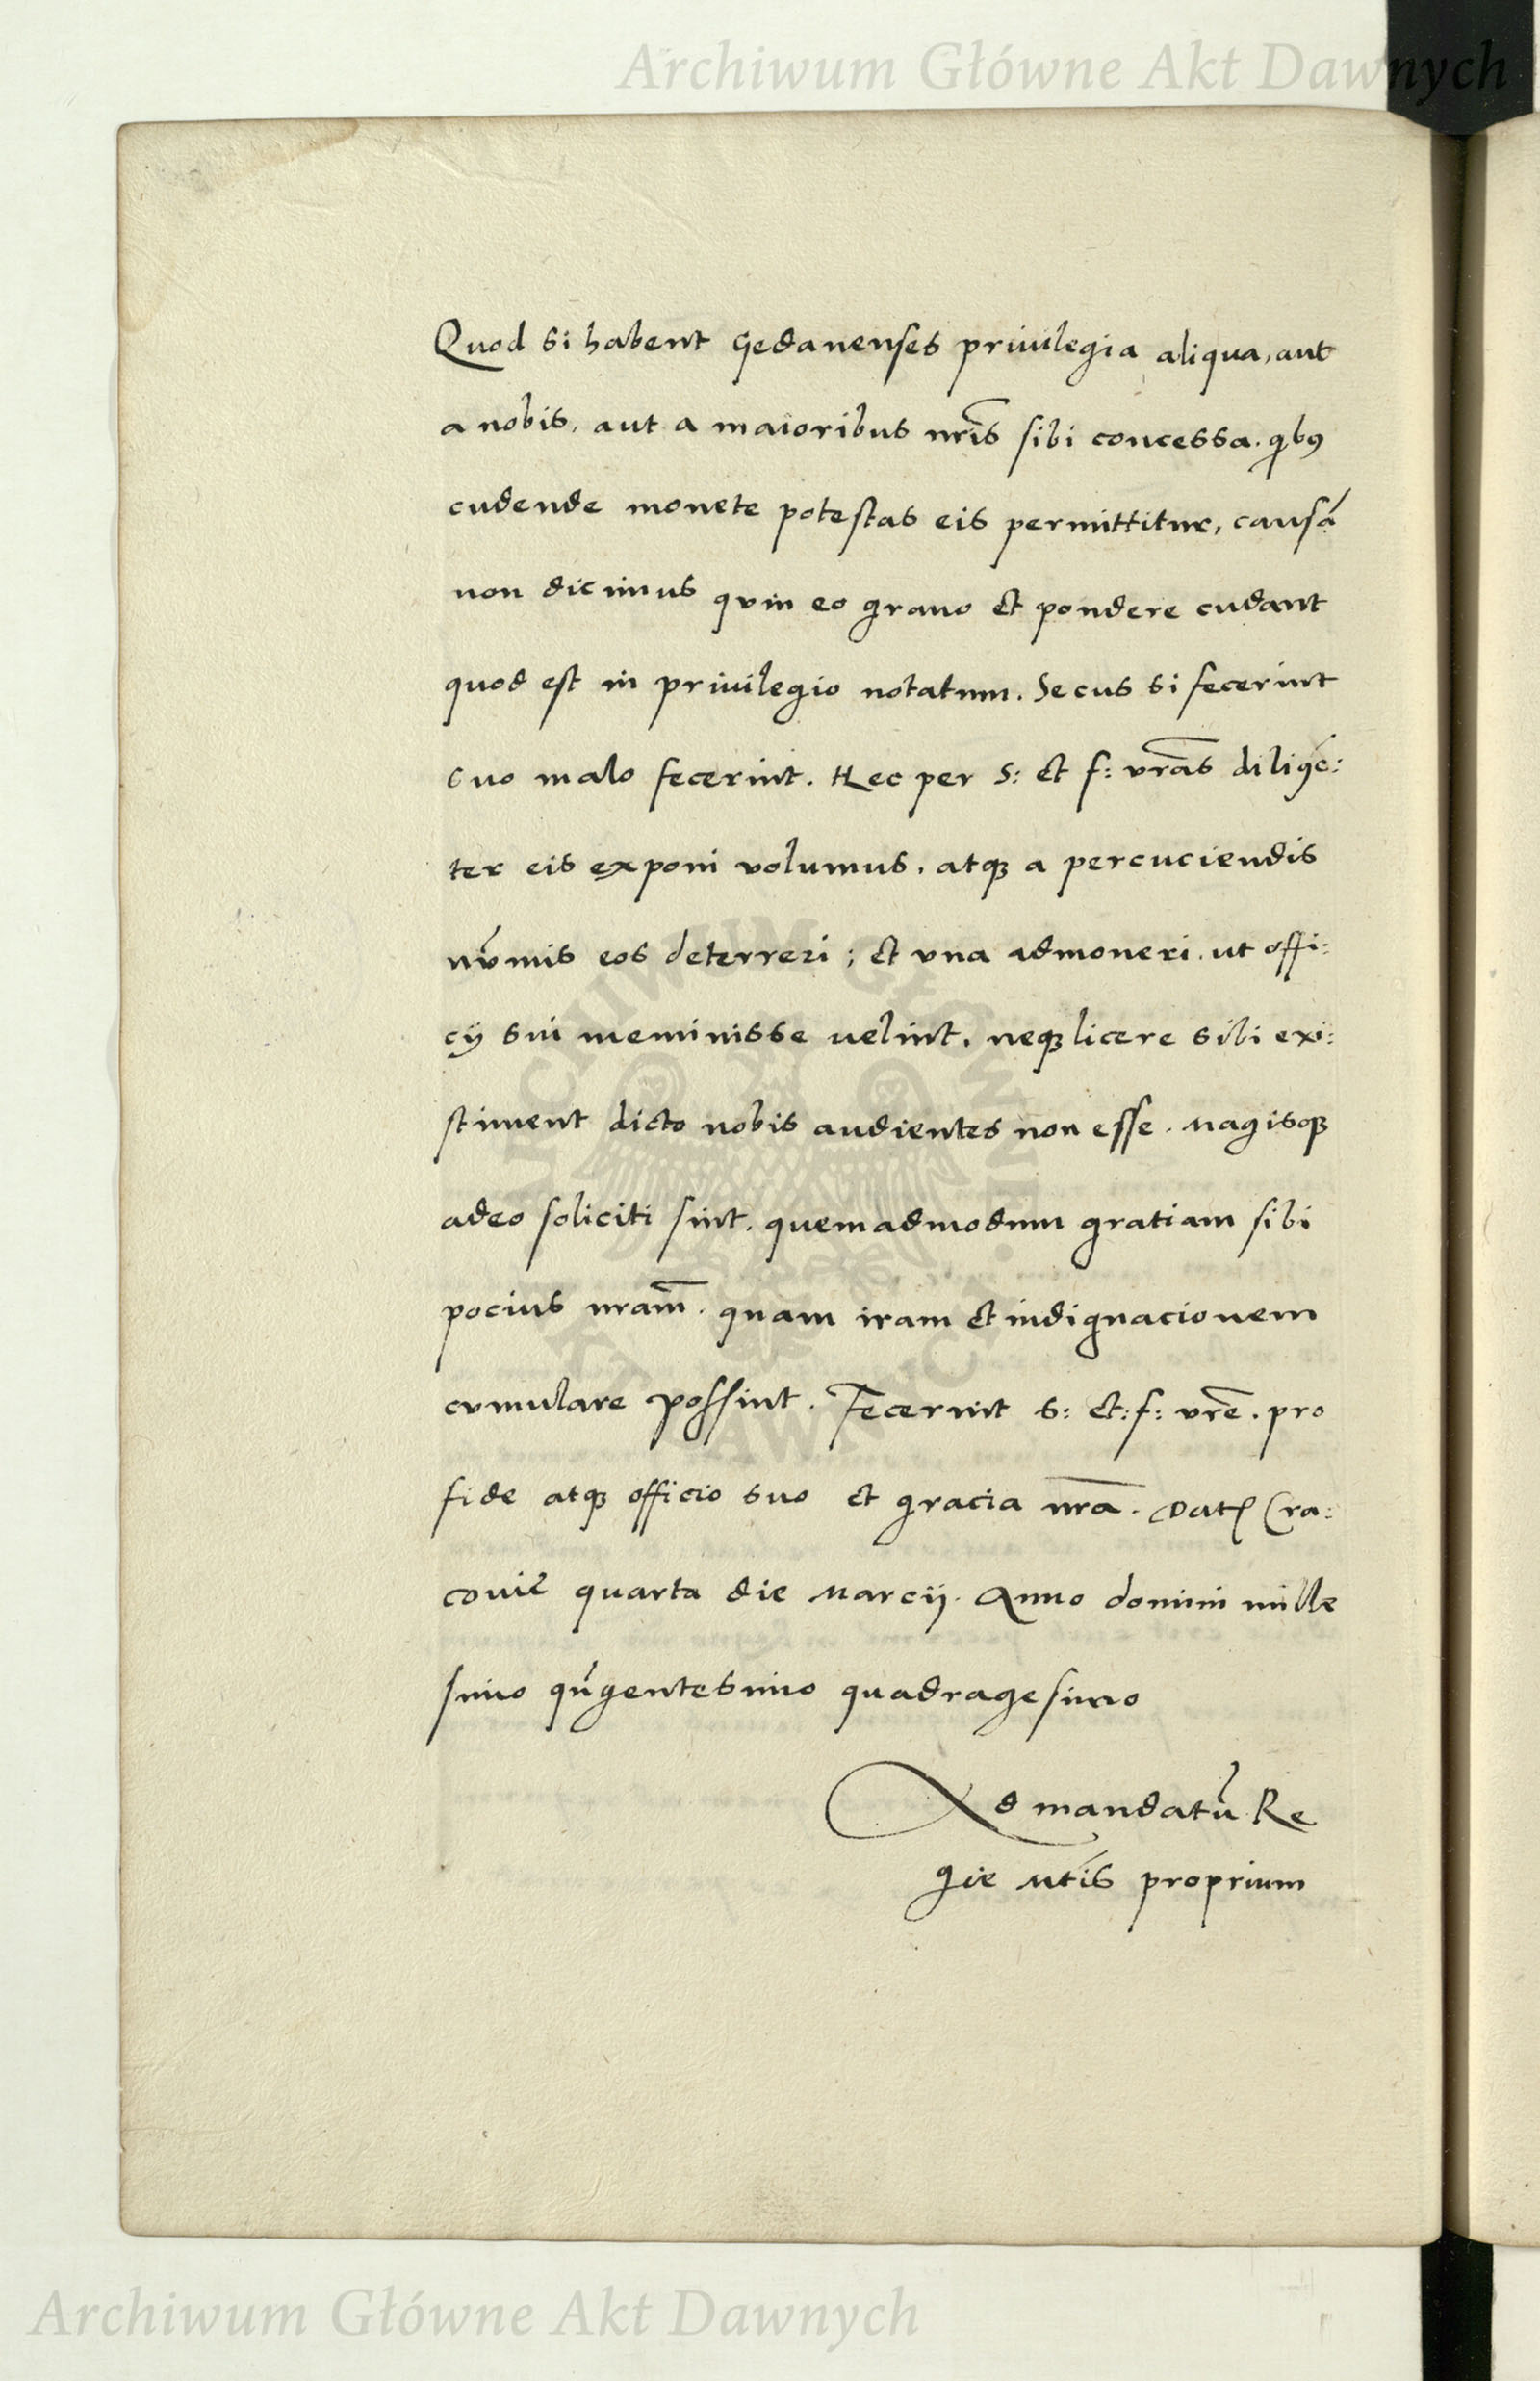 Archiwum Główne Akt Dawnych
Quod si habent Gedanenses priuilegia aliqua, aut
a nobis, aut a maioribus nr̃is sibi concessa. qibꝯ
cudende monete potestas eis permittitur, causá
non dicimus quin eo grano et pondere cudant
quod est in priuilegio notatum. Secus si fecerint
suo malo fecerint. Hec per S: et f: vr̃as diligẽ:
ter eis exponi volumus, atqꝫ a percuciendis
nũmis eos deterreri; et vna admoneri. ut offi:
cij sui meminisse uelint. neqꝫ licere sibi exi:
stiment dicto nobis audientes non esse. Magisqꝫ
adeo soliciti sint. quemadmodum gratiam sibi
pocius nr̃am. quam iram et indignacionem
cumulare possint. Fecerint S: et: f: vr̃e. pro
fide atqꝫ officio suo et gracia nr̃a. Datꝭ Cra:
couie quarta die Marcij. Anno domini mille
simo qũgentesimo quadragesimo
Ad mandatũ Re
gie Mt̃is proprium
ARCHIWUM GŁÓWNE AKT DAWNYCH
Archiwum Główne Akt Dawnych